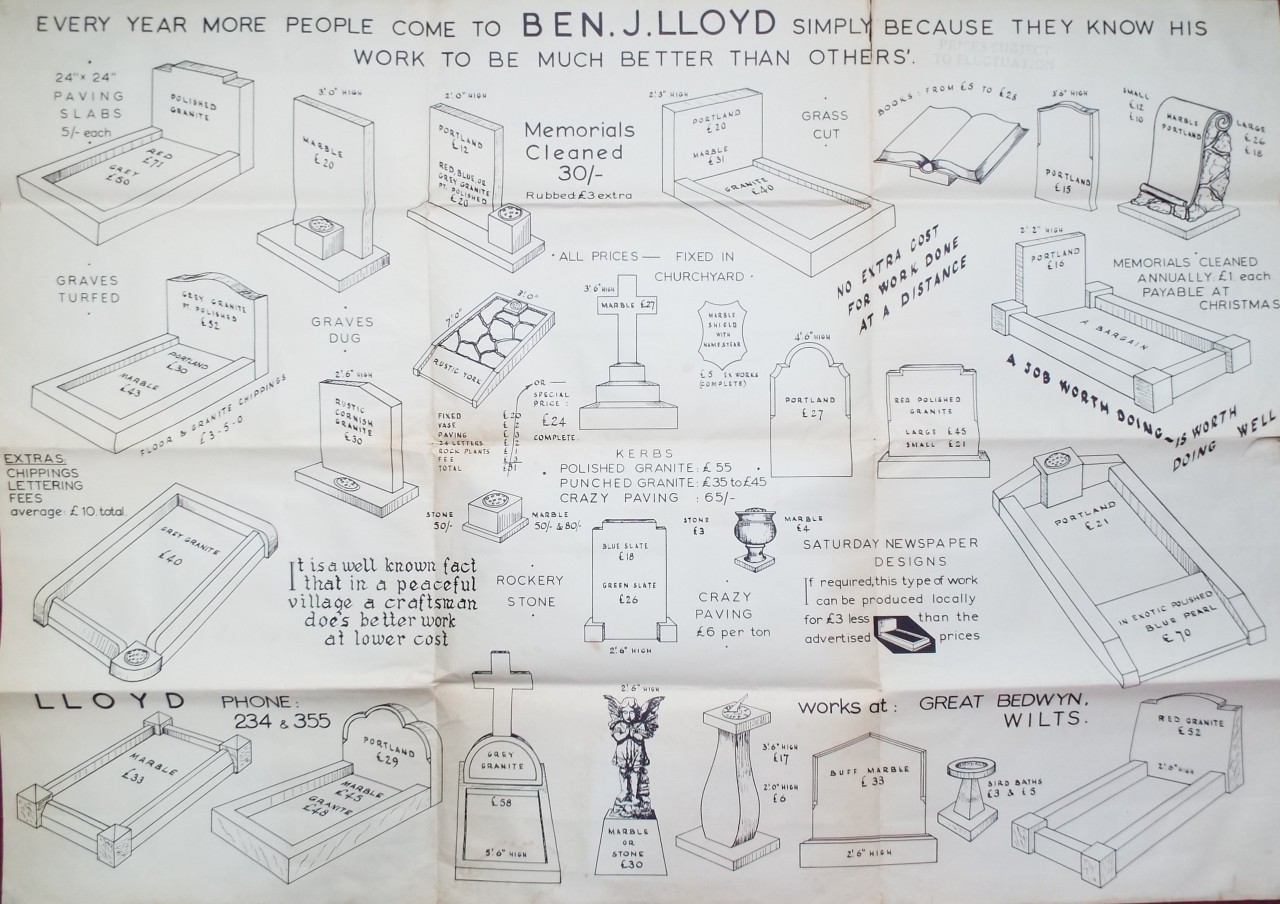 EVERY YEAR MORE PEOPLE COME TO BEN. J. LLOYD SIMPLY BECAUSE THEY KNOW HIS
WORK TO BE MUCH BETTER THAN OTHERS'.
PRICES SUBJECT
TO FLUCTUATION
24"x 24"
PAVING
SLABS
5/- each
POLISHED
GRANITE
RED
£71
GREY
£50
3'0" HIGH
MARBLE
£20
2'0" HIGH
PORTLAND
£12
RED, BLUE, OR
GREY GRANITE
PT. POLISHED
£20
Memorials
Cleaned
30/-
Rubbed £3 extra
2'3" HIGH
PORTLAND
£20
MARBLE
£31
GRANITE
£40
GRASS
CUT
BOOKS: FROM £5 TO £25
3'6" HIGH
PORTLAND
£15
SMALL
£12
£10
MARBLE
PORTLAND
LARGE
£26
£18
GRAVES
TURFED
GREY GRANITE
PT. POLISHED
£52
PORTLAND
£30
MARBLE
£43
FLOOR & GRANITE CHIPPINGS
£3-5-0
GRAVES
DUG
2'6" HIGH
RUSTIC
CORNISH
GRANITE
£30
ALL PRICES — FIXED IN
CHURCHYARD
3'0"
7'0"
RUSTIC YORK
FIXED £20
VASE £2
PAVING £3
24 LETTERS £2
ROCK PLANTS £1
FEE £3
TOTAL £31
OR —
SPECIAL
PRICE:
£24
COMPLETE
3'6" HIGH
MARBLE £27
MARBLE
SHIELD
WITH
NAME & YEAR
£5 EX WORKS
(COMPLETE)
NO EXTRA COST
FOR WORK DONE
AT A DISTANCE
4'6" HIGH
PORTLAND
£27
RED POLISHED
GRANITE
LARGE £45
SMALL £21
2'2" HIGH
PORTLAND
£16
A BARGAIN
MEMORIALS CLEANED
ANNUALLY: £1 each
PAYABLE AT
CHRISTMAS
A JOB WORTH DOING—IS WORTH
DOING WELL
EXTRAS:
CHIPPINGS
LETTERING
FEES
average: £10. total.
GREY GRANITE
£40
It is a well known fact
that in a peaceful
village a craftsman
does better work
at lower cost
KERBS
POLISHED GRANITE: £55
PUNCHED GRANITE: £35 to £45
CRAZY PAVING : 65/-
STONE
50/-
MARBLE
50/- & 80/-
ROCKERY
STONE
BLUE SLATE
£18
GREEN SLATE
£26
2'6" HIGH
STONE
£3
MARBLE
£4
CRAZY
PAVING
£6 per ton
SATURDAY NEWSPAPER
DESIGNS
If required, this type of work
can be produced locally
for £3 less than the
advertised prices
PORTLAND
£21
IN EXOTIC POLISHED
BLUE PEARL
£70
LLOYD PHONE:
234 & 355
MARBLE
£33
PORTLAND
£29
MARBLE
£45
GRANITE
£48
GREY
GRANITE
£58
5'6" HIGH
2'6" HIGH
MARBLE
OR
STONE
£30
3'6" HIGH
£17
2'0" HIGH
£6
works at: GREAT BEDWYN,
WILTS.
BUFF MARBLE
£33
2'6" HIGH
BIRD BATHS
£3 & £5
RED GRANITE
£52
2'6" HIGH